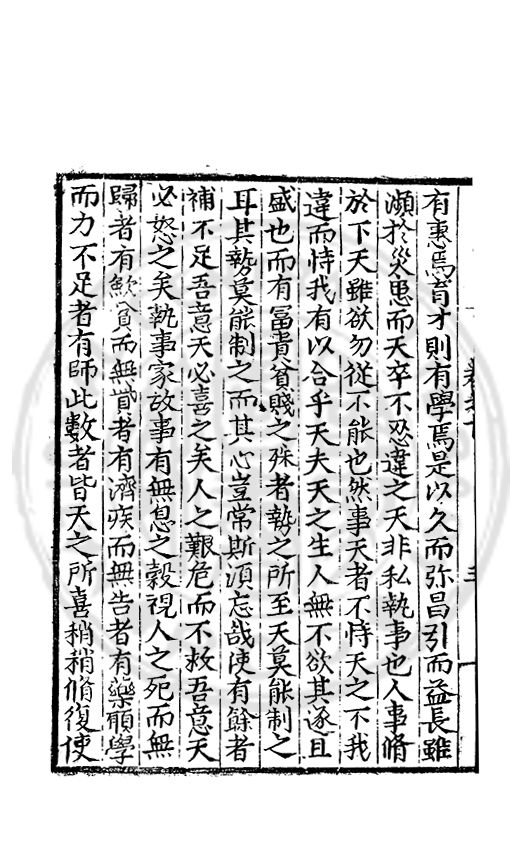 有惠焉育才則有學焉是以久而弥昌引而益長雖
瀕扵災患而天卒不忍違之天非私執事也人事脩
於下天雖欲勿從不能也然事天者不恃天之不我
違而恃我有以合乎天夫天之生人無不欲其遂且
盛也而有冨貴貧賤之殊者勢之所至天莫能制之
耳其勢莫能制之而其心豈常斯湏忘哉使有餘者
補不足吾意天必喜之矣人之艱危而不救吾意天
必怒之矣執事家故事有無息之穀視人之死而無
歸者有歛貧而無貲者有濟疾而無告者有藥願學
而力不足者有師此數者皆天之所喜稍稍脩復使